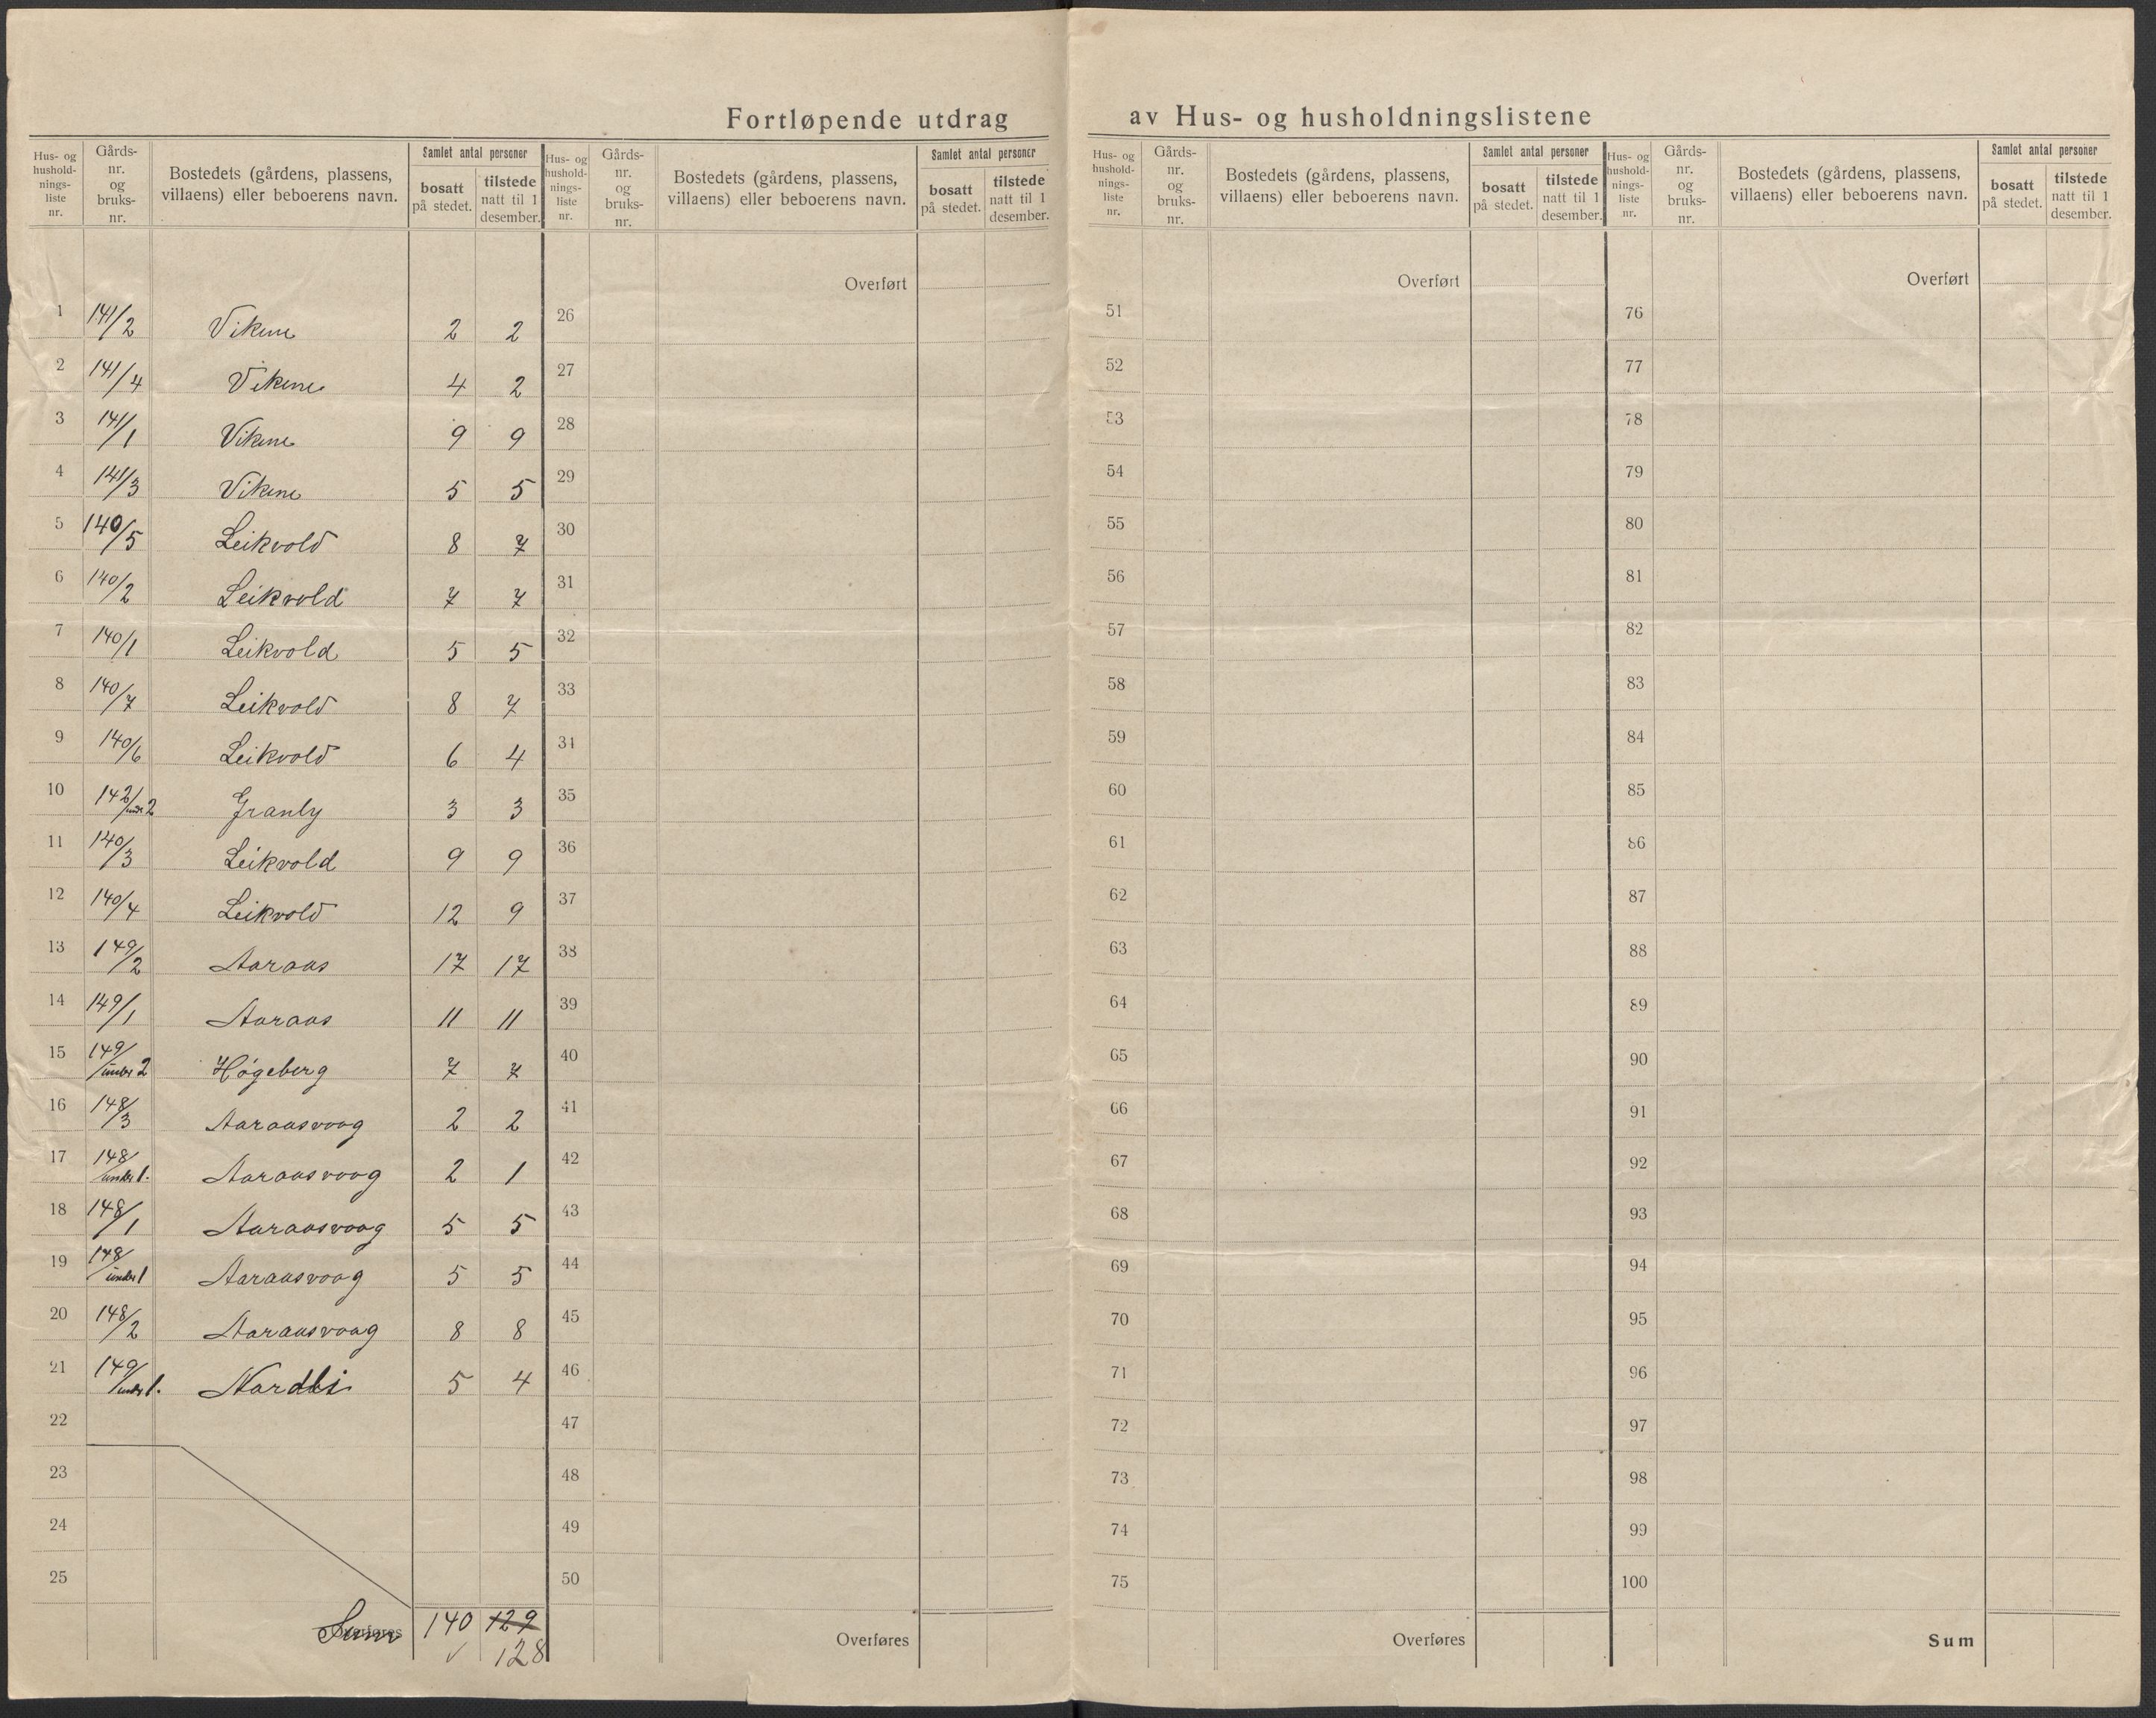 Fortløpende utdrag av Hus- og husholdningslistene
Hus- og hushold-nings-liste nr. | Gårds-nr. og bruks-nr. | Bostedets (gårdens, plassens, villaens) eller beboerens navn. | Samlet antal personer | bosatt på stedet. | tilstede natt til 1 desember.
1 141/2 Vikene 2 2
2 141/4 Vikene 4 2
3 141/1 Vikene 9 9
4 141/3 Vikene 5 5
5 140/5 Leikvold 8 7
6 140/2 Leikvold 7 7
7 140/1 Leikvold 5 5
8 140/7 Leikvold 8 7
9 140/6 Leikvold 6 4
10 142/under 2 Granly 3 3
11 140/3 Leikvold 9 9
12 140/4 Leikvold 12 9
13 149/2 Aaraas 17 17
14 149/1 Aaraas 11 11
15 149/under 2 Høgeberg 7 7
16 148/3 Aaraasvaag 2 2
17 148/under 1. Aaraasvaag 2 1
18 148/1 Aaraasvaag 5 5
19 148/under 1 Aaraasvaag 5 5
20 148/2 Aaraasvaag 8 8
21 149/under 1. Nordli 5 4
22
23
24
25
Overføres Sum 140 129
128
Hus- og hushold-nings-liste nr. | Gårds-nr. og bruks-nr. | Bostedets (gårdens, plassens, villaens) eller beboerens navn. | Samlet antal personer | bosatt på stedet. | tilstede natt til 1 desember.
Overført
26
27
28
29
30
31
32
33
34
35
36
37
38
39
40
41
42
43
44
45
46
47
48
49
50
Overføres
Hus- og hushold-nings-liste nr. | Gårds-nr. og bruks-nr. | Bostedets (gårdens, plassens, villaens) eller beboerens navn. | Samlet antal personer | bosatt på stedet. | tilstede natt til 1 desember.
Overført
51
52
53
54
55
56
57
58
59
60
61
62
63
64
65
66
67
68
69
70
71
72
73
74
75
Overføres
Hus- og hushold-nings-liste nr. | Gårds-nr. og bruks-nr. | Bostedets (gårdens, plassens, villaens) eller beboerens navn. | Samlet antal personer | bosatt på stedet. | tilstede natt til 1 desember.
Overført
76
77
78
79
80
81
82
83
84
85
86
87
88
89
90
91
92
93
94
95
96
97
98
99
100
Sum